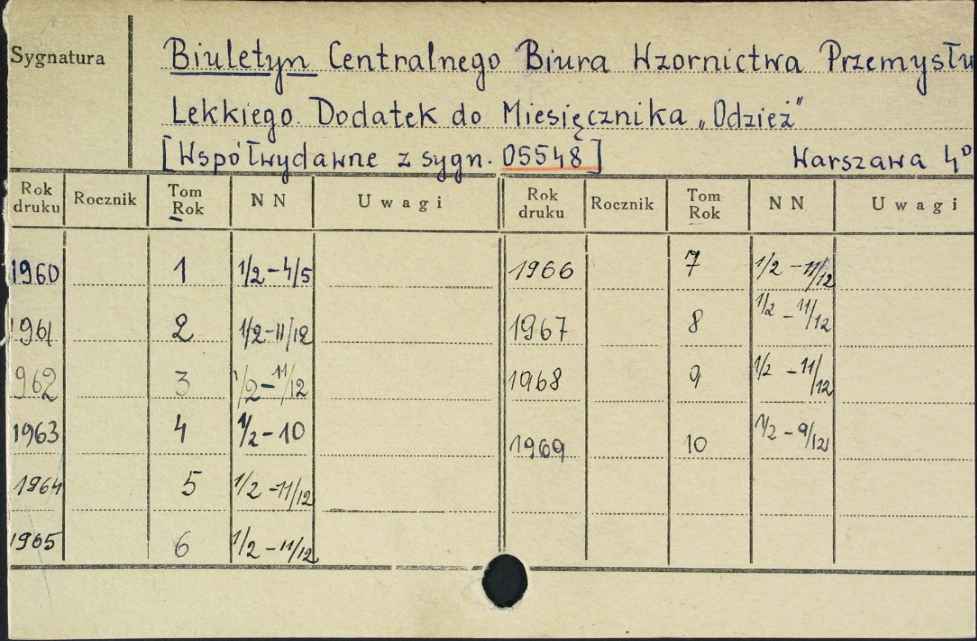 Sygnatura
Biuletyn Centralnego Biura Wzornictwa Przemysłu
Lekkiego. Dodatek do Miesięcznika „Odzież”
[Współwydawne z sygn. 05548] Warszawa 4°
Rok druku Rocznik Tom Rok NN Uwagi Rok druku Rocznik Tom Rok NN Uwagi
1960 1 1/2-4/5 1966 7 1/2-11/12
1961 2 1/2-11/12 1967 8 1/2-11/12
962 3 1/2-11/12 1968 9 1/2-11/12
1963 4 1/2-10 1969 10 1/2-9/12
1964 5 1/2-11/12
1965 6 1/2-11/12